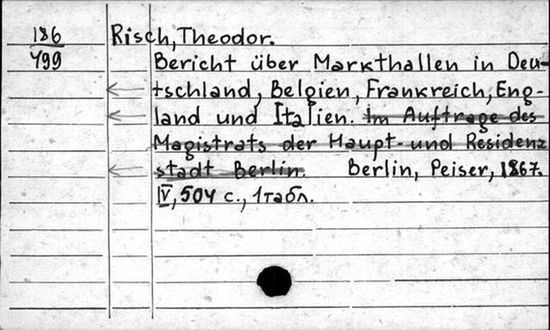 186
499
Risch, Theodor.
Bericht über Markthallen in Deu-
tschland, Belgien, Frankreich, Eng-
land und Italien. Im Auftrage des
Magistrats der Haupt- und Residenz
stadt Berlin. Berlin, Peiser, 1867.
IV, 504 с., 1 табл.